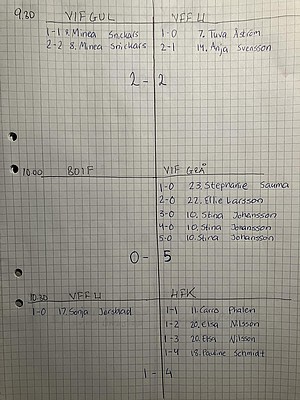 9.30 VIF GUL VFF U
1-1 8. Minea Snickars 1-0 7. Tuva Åström
2-2 8. Minea Snickars 2-1 14. Anja Svensson
2 - 2
10.00 BOIF VIF GRÅ
1-0 23. Stephanie Sauma
2-0 22. Ellie Larsson
3-0 10. Stina Johansson
4-0 10. Stina Johansson
5-0 10. Stina Johansson
0 - 5
10.30 VFF U HFK
1-0 17. Sonja 1-1 11. Carro Phalen
1-2 20. Elsa Nilsson
1-3 20. Elsa Nilsson
1-4 18. Pauline Schmidt
1 - 4